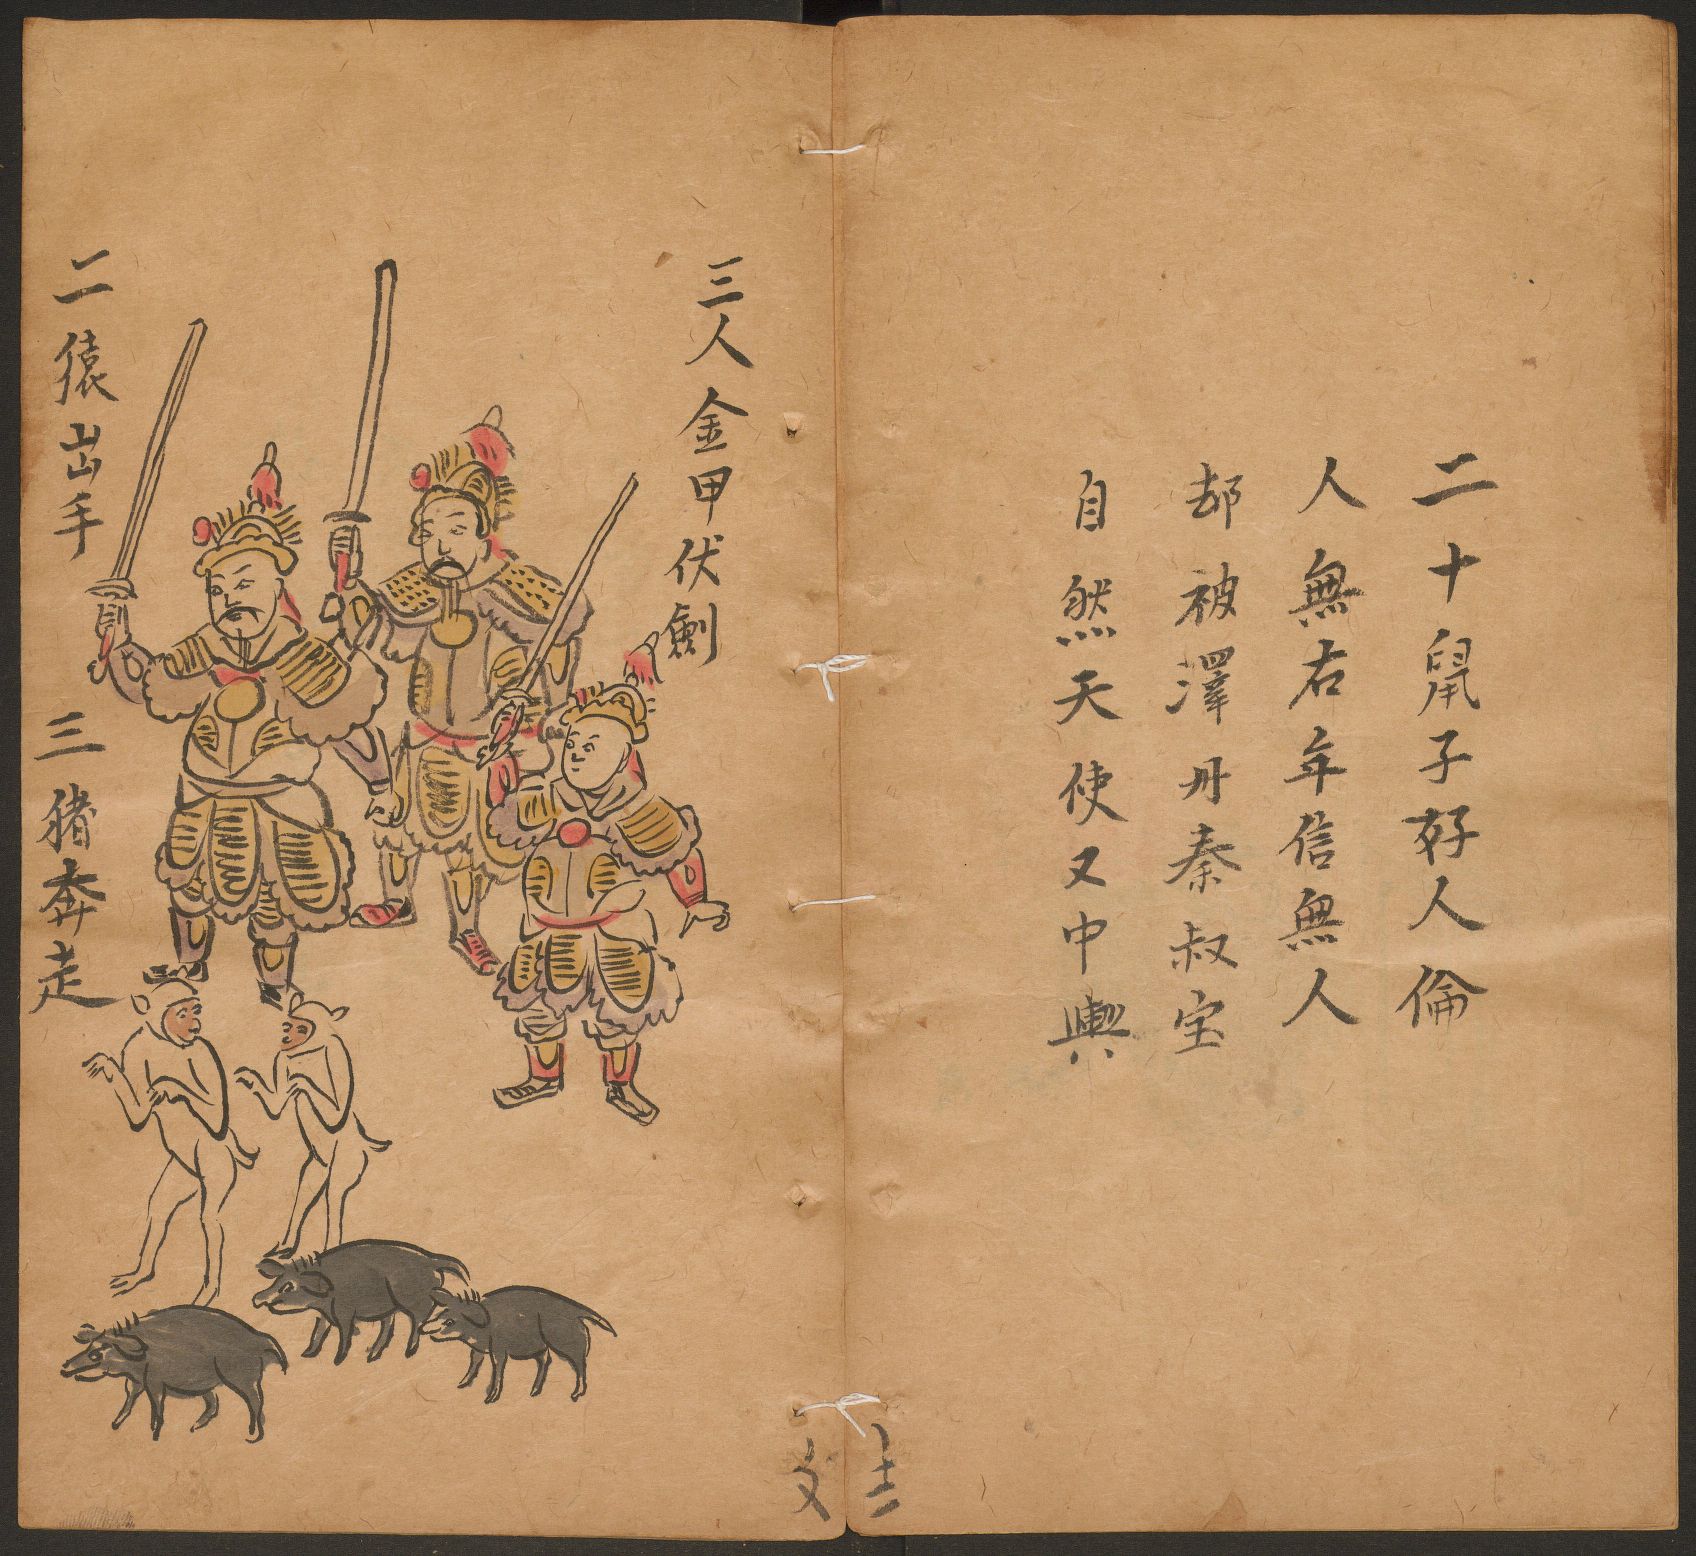 二十鼠子好人倫
人無右年信無人
却被澤丹秦叔宝
自然天使又中興
三人金甲伏劍
二猿出手
三猪奔走
十二
文